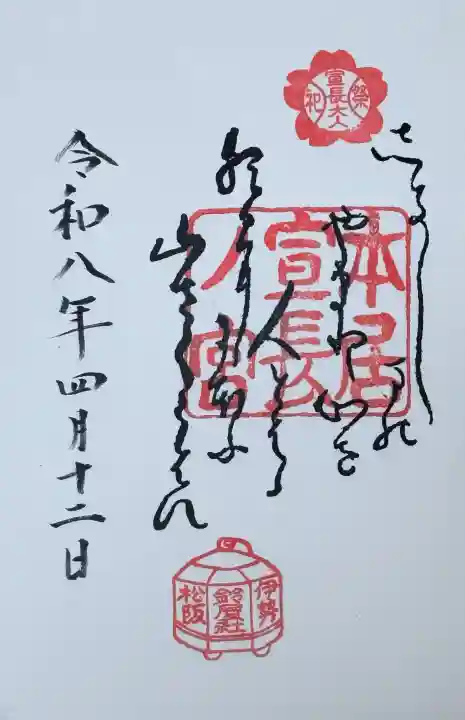 宣長大人
しきしまの
やまとこゝろを
人とはゝ
朝日ににほふ
山さくらはな
本居
宣長
ノ宮
令和八年四月十二日
伊勢
鈴屋社
松阪